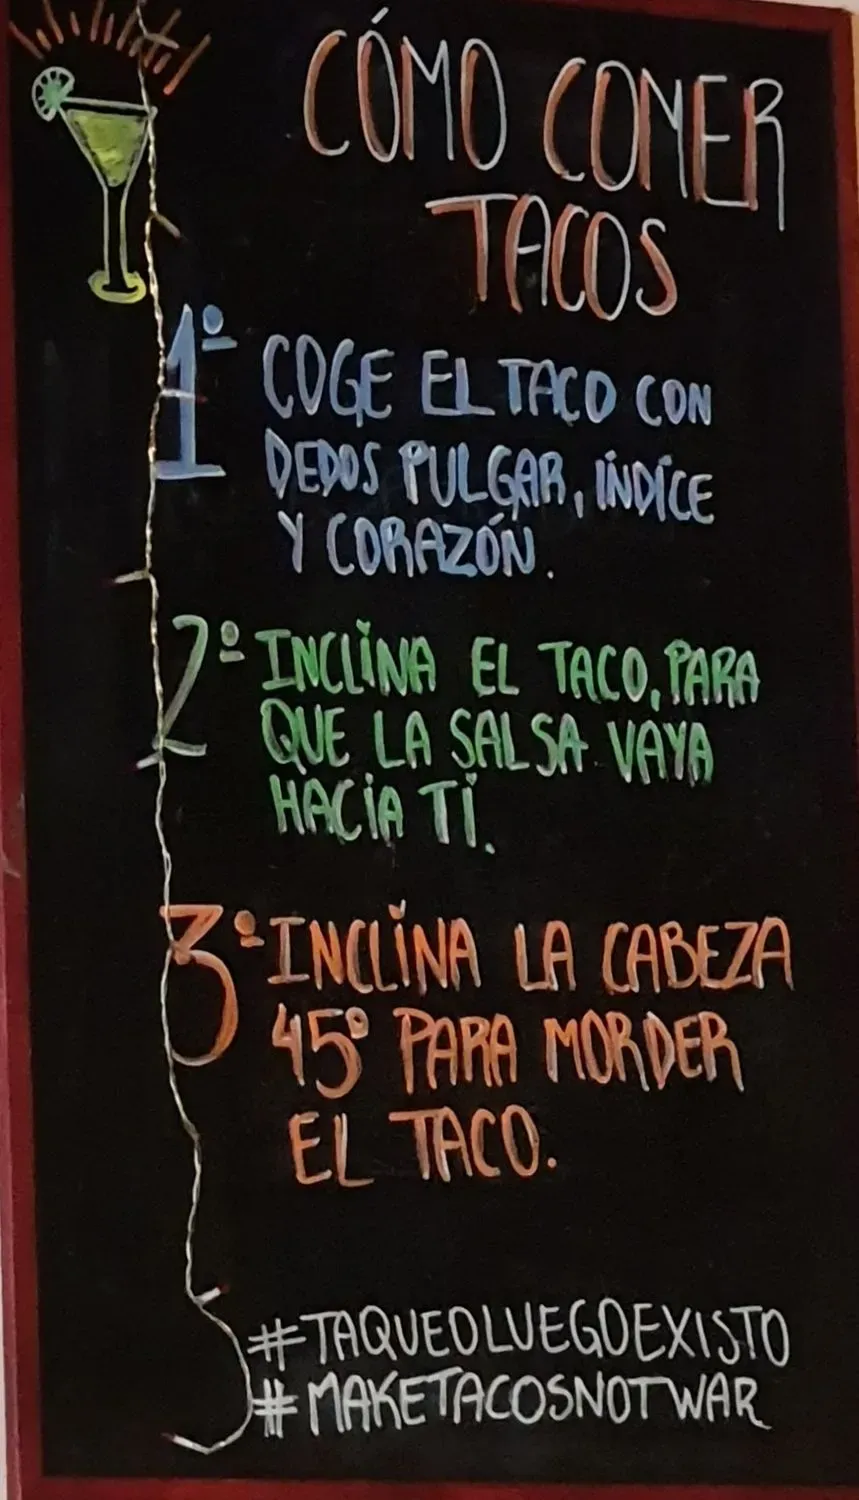 CÓMO COMER
TACOS
1º COGE EL TACO CON
DEDOS PULGAR, ÍNDICE
Y CORAZÓN.
2º INCLINA EL TACO, PARA
QUE LA SALSA VAYA
HACIA TI.
3º INCLINA LA CABEZA
45º PARA MORDER
EL TACO.
#TAQUEOLUEGOEXISTO
#MAKETACOSNOTWAR